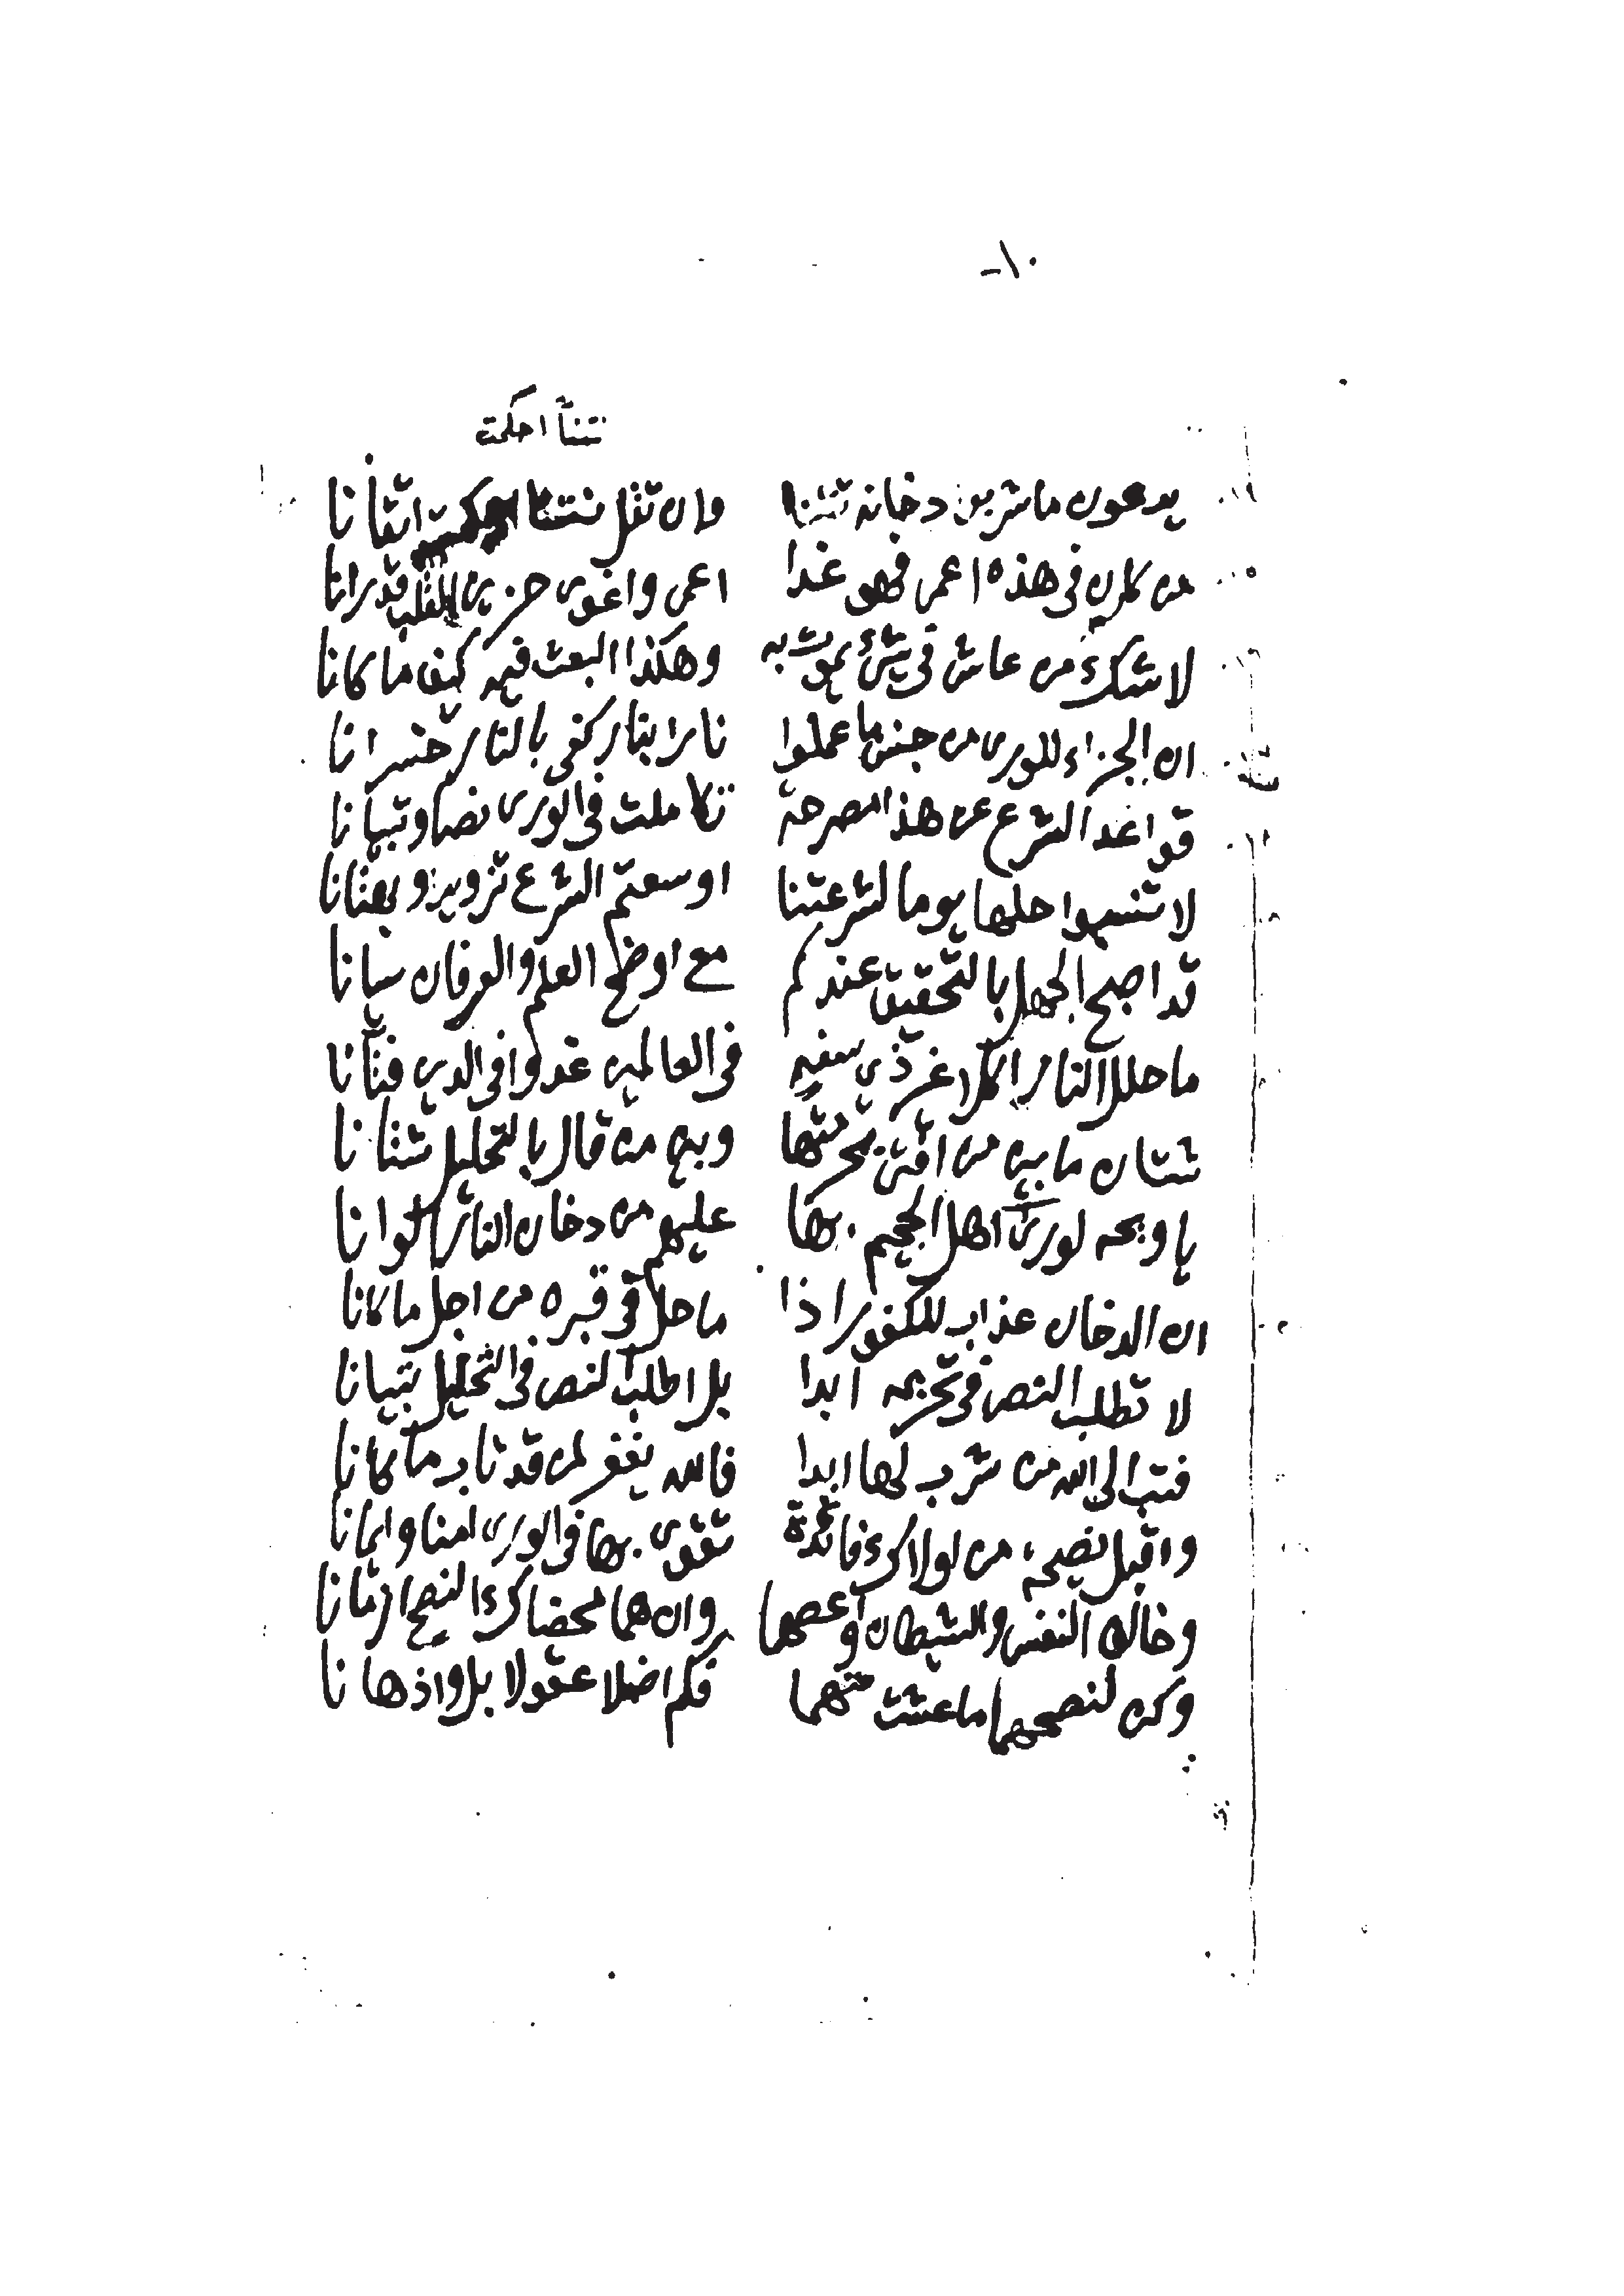 ١٠-
تتنا احكمت
يدعون ماشربو دخانه تتنا وان تقل تتنا احكمت اتقانا
من كان في هذه اعمى فهو غدا اعمى واغوى حزين القلب قد رانا
لاشك من عاش في شئ يموت به وهكذا البعث فيه كيف ما كانا
ان الجزاء للورى من جنس ما عملوا نارا بنار كفى بالنار خسرانا
قواعد الشرع عن هذا مصرحة تكاملت في الورى نصا وتبيانا
لا تنسبوا حلها يوما لشرعتنا اوسعتم الشرع تزويرا وبهتانا
قد اصبح الجهل بالتحقيق عندكم مع اوضح العلم والعرفان سيانا
ماحلل النار اكلا غر ذي سفه في العالمين غدوا في الدين فتانا
شتان ما بين من افتى بحرمتها وبين من قال بالتحليل شتانا
يا ويحه لو رى اهل الجحيم بها عليهم من دخان النار الوانا
ان الدخان عذاب للكفور اذا ماحل في قبره من اجل ما كانا
لا تطلب النص في تحريمه ابدا بل اطلب النص في التحليل تبيانا
فتب الى الله من شرب لها ابدا فالله يغفر لمن قد تاب ما كانا
واقبل نصيحة من لولاك فائدة تقوى بها في الورى امنا وايمانا
وخالف النفس والشيطان واعصهما وان هما محضاك النصح ازمانا
وكن لنصحهما ماعشت متهما فكم اضلا عقولا بل واذهانا